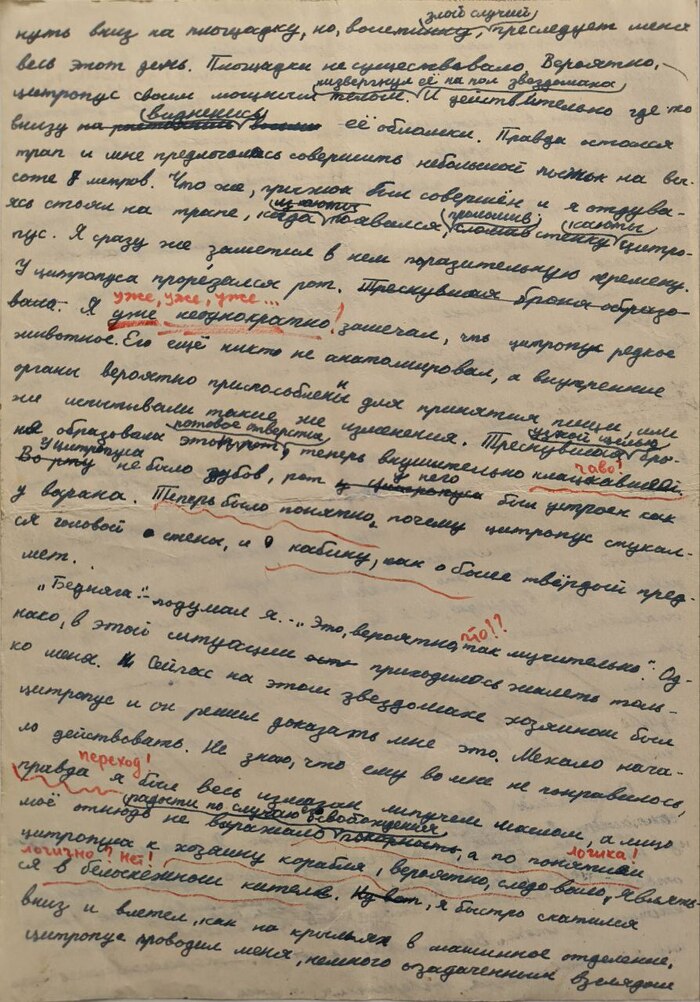 злой случай
нуть вниз на площадку, но, воистинну, преследует меня
весь этот день. Площадки не существовало. Вероятно,
низвергнул её на пол звездомака
цитропус своим мощным телом. И действительно где-то
виднелись
внизу на её обломки. Правда остался
трап и мне предлогалось совершить небольшой прыжок на вы-
соте 8 метров. Что же, прыжок был совершён и я отдува-
ясь стоял на трапе, когда появался, сломав стенку цитро-
проломив каюты
пус. Я сразу же заметил в нем поразительную перемену.
У цитропуса прорезался рот. Треснувшая броня образо-
уже, уже, уже...
вала. Я уже неоднократно! замечал, что цитропус редкое
животное. Его ещё никто не анатомировал, а внутренние
органы вероятно приспособлены для принятия пищи, или
же испытывали такие же изменения. Треснувшая бро-
ротовое отверстие узкой щелью
ня образовала этот рот, теперь внушительно клацкавший.
чаво!
У цитропуса
Во рту не было зубов, рот у цитропуса был устроен как
у него
у варана. Теперь было понятно, почему цитропус стукал-
ся головой о стены, и о кабину, как о более твёрдый пред-
мет.
„Бедняга" - подумал я. - „Это, вероятно, так мучительно". Од-
что!?
нако, в этой ситуации приходилось жалеть толь-
ко меня. Сейчас на этом звездомаке хозяином был
цитропус и он решил доказать мне это. Мекало нача-
ло действовать. Не знаю, что ему во мне не понравилось,
переход!
правда я был весь измазан липучем маслом, а лицо
радости по случаю освобождения
моё отнюдь не выражало покорность, а по понятиям
логика!
цитропуса к хозяину корабля, вероятно, следовало, являть-
логично? Нет!
ся в белоснежном кителе. Ну вот, я быстро скатился
вниз и влетел, как на крыльях в машинное отделение,
цитропус проводил меня, немного озадаченным взглядом